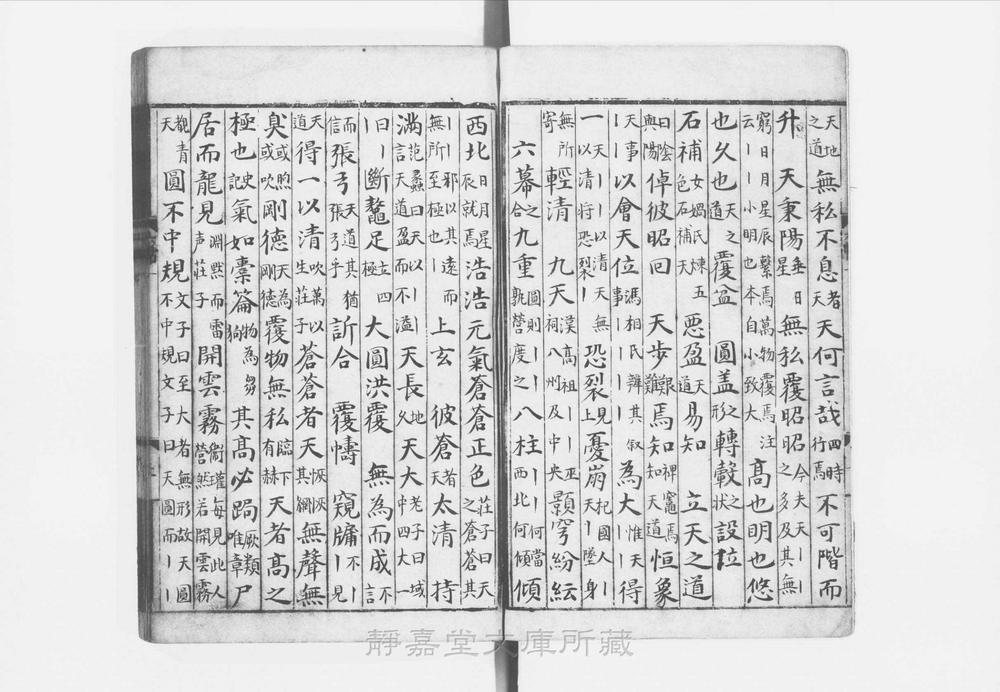 天地之道無私不息者天天何言哉四時行焉不可階而
升 天秉陽垂日星無私覆昭昭今夫天丨之多及其無
窮日月星辰繫焉萬物覆焉注云丨丨小明也本自小致大高也明也悠
也久也天之道覆盆 圓盖之形轉轂之狀設位
石補女媧氏煉五色石補天惡盈天道易知 立天之道
曰陰與陽倬彼昭回 天步艱難焉知裨竈焉知天道恒象
天丨事以會天位馮相氏辨其叙事為大丨惟天丨得
一天丨丨以清天無以清將恐裂恐裂見上憂崩杞國人天丨墜身
無所寄輕清 九天漢高祖丨丨巫祠八州及中央顥穹紛紜
六幕之合九重圜則丨丨孰營度之八柱丨丨何當西北何傾傾
西北日月星辰就焉浩浩元氣蒼蒼正色莊子曰天之蒼蒼其
丨丨邪以其遠而無所至極也丨上玄 彼蒼者天太清 持
滿范蠡曰天以丨言天道盈而不溢天長地久天大老子曰域中四大一
曰丨斷鼇足立四極大圓洪覆 無為而成不言
而丨信張弓天道其猶張弓乎訢合 覆幬 窺牖丨不丨見
天道得一以清吹萬以生莊子蒼蒼者天恢恢其網無聲無
臭或煦或吹剛德天為剛德覆物無私臨下有赫天者髙之
極也史記氣如橐籥物為芻狗其髙必跼厥類惟章尸
居而龍見淵默而雷声莊子開雲霧衞瓘每見此人瑩然若開雲霧
覩青天圓不中規文子曰至大者無形故天圓不中規文子曰天圓而丨丨
靜嘉堂文庫所藏